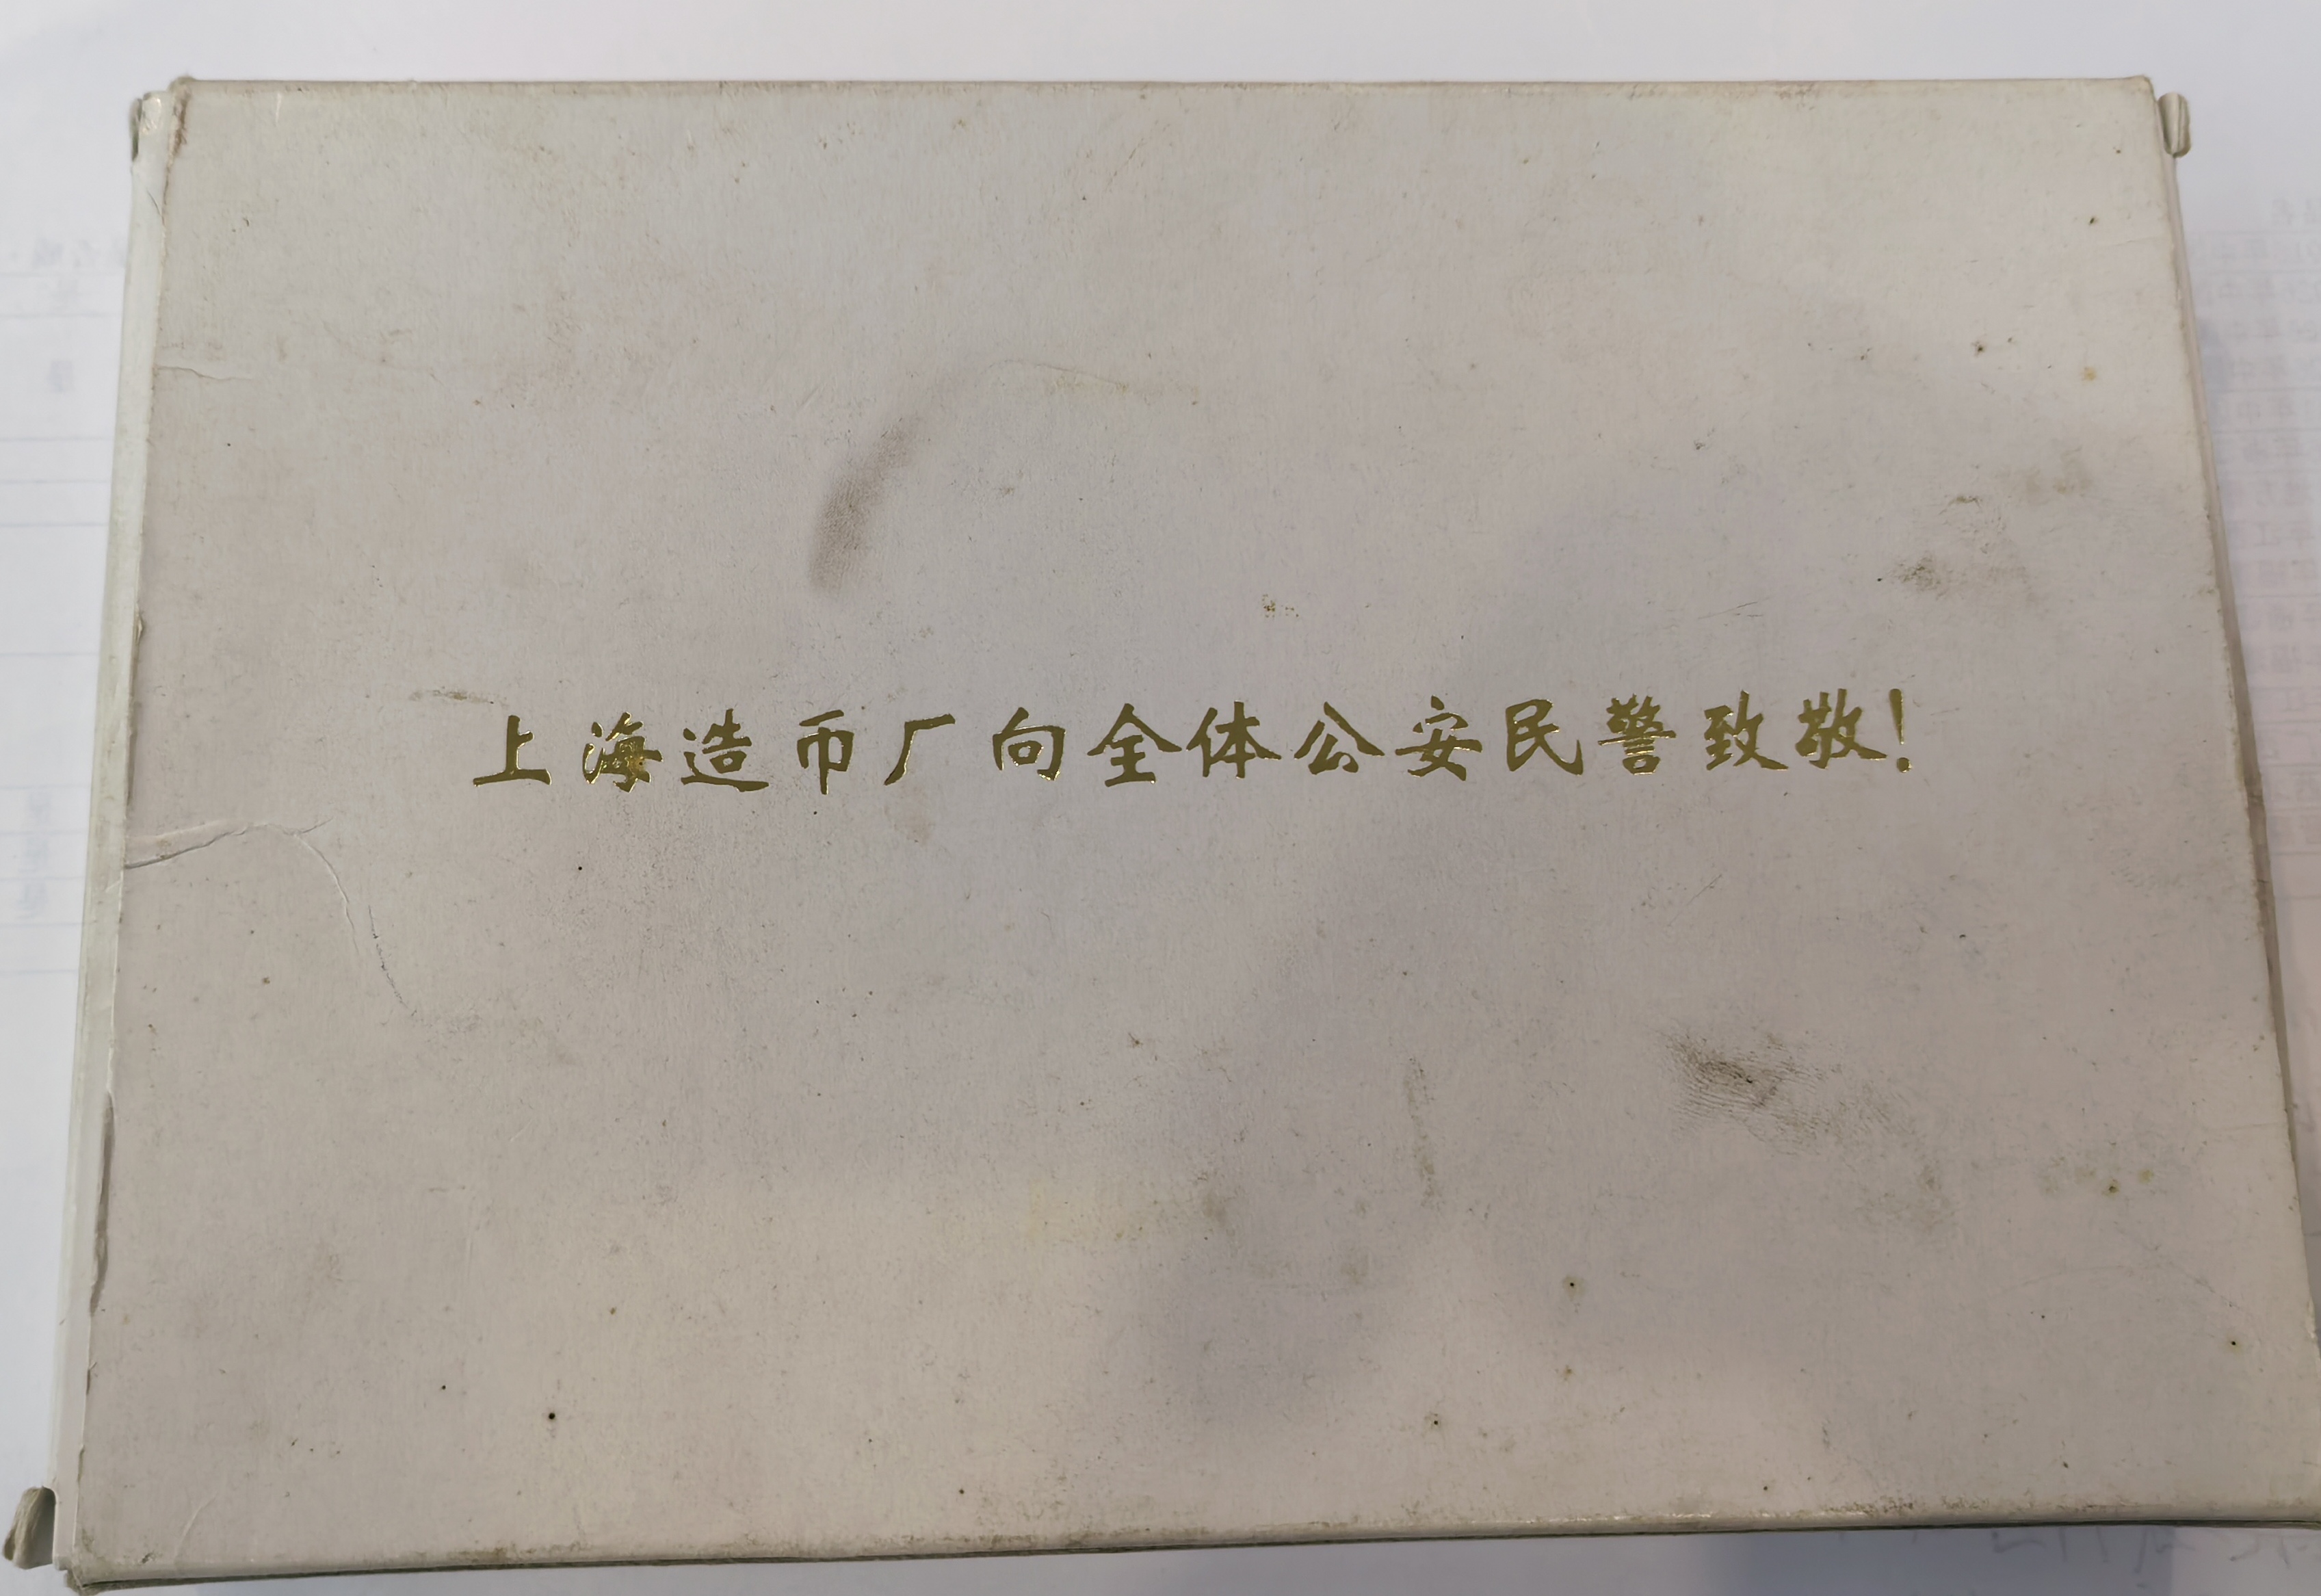 上海造币厂向全体公安民警致敬!